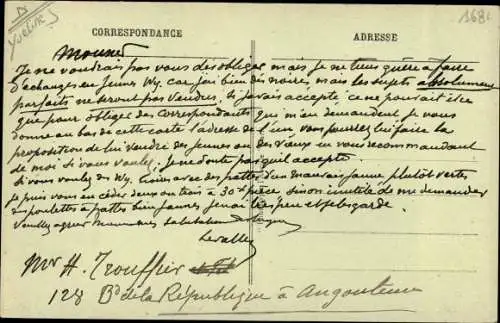 Yvelin
1686
CORRESPONDANCE
ADRESSE
Monsieur
Je ne voudrais pas vous désobliger mais je ne tiens guère a faire
d'échanges en jeunes Wy. car j'ai bien des noires, mais les sujets absolument
parfaits ne seront pas vendus, si j'avais accepté ce ne pourrait être
que pour obliger des correspondants qui m'en demandent je vous
donne au bas de cette carte l'adresse de l'un, vous pourrez lui faire la
proposition de lui vendre des jeunes ou des vieux en vous recommandant
de moi si vous voulez. Je ne doute pas qu'il accepte.
Si vous voulez des Wy. avec des pattes d'un mauvais jaune plutôt vertes
je puis vous en céder deux ou trois à 30f pièce sinon inutile de me demander
des poulettes à pattes bien jaunes j'en ai très peu et je les garde.
Veuillez agréer Monsieur Salutations
Levallez
Mr H. Trouffier
128 Bd de la République à Angoulême